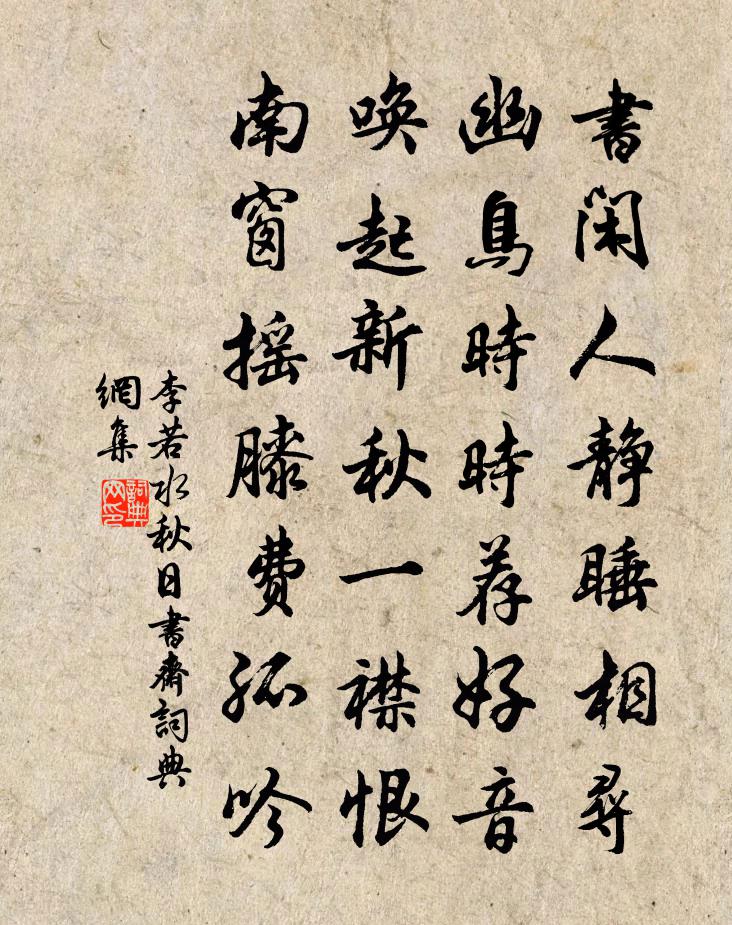 書閑人靜睡相尋
幽鳥時時荐好音
喚起新秋一襟恨
南窗摇膝費孤吟
李若水秋日書齋詞典
網集
詞典
网印